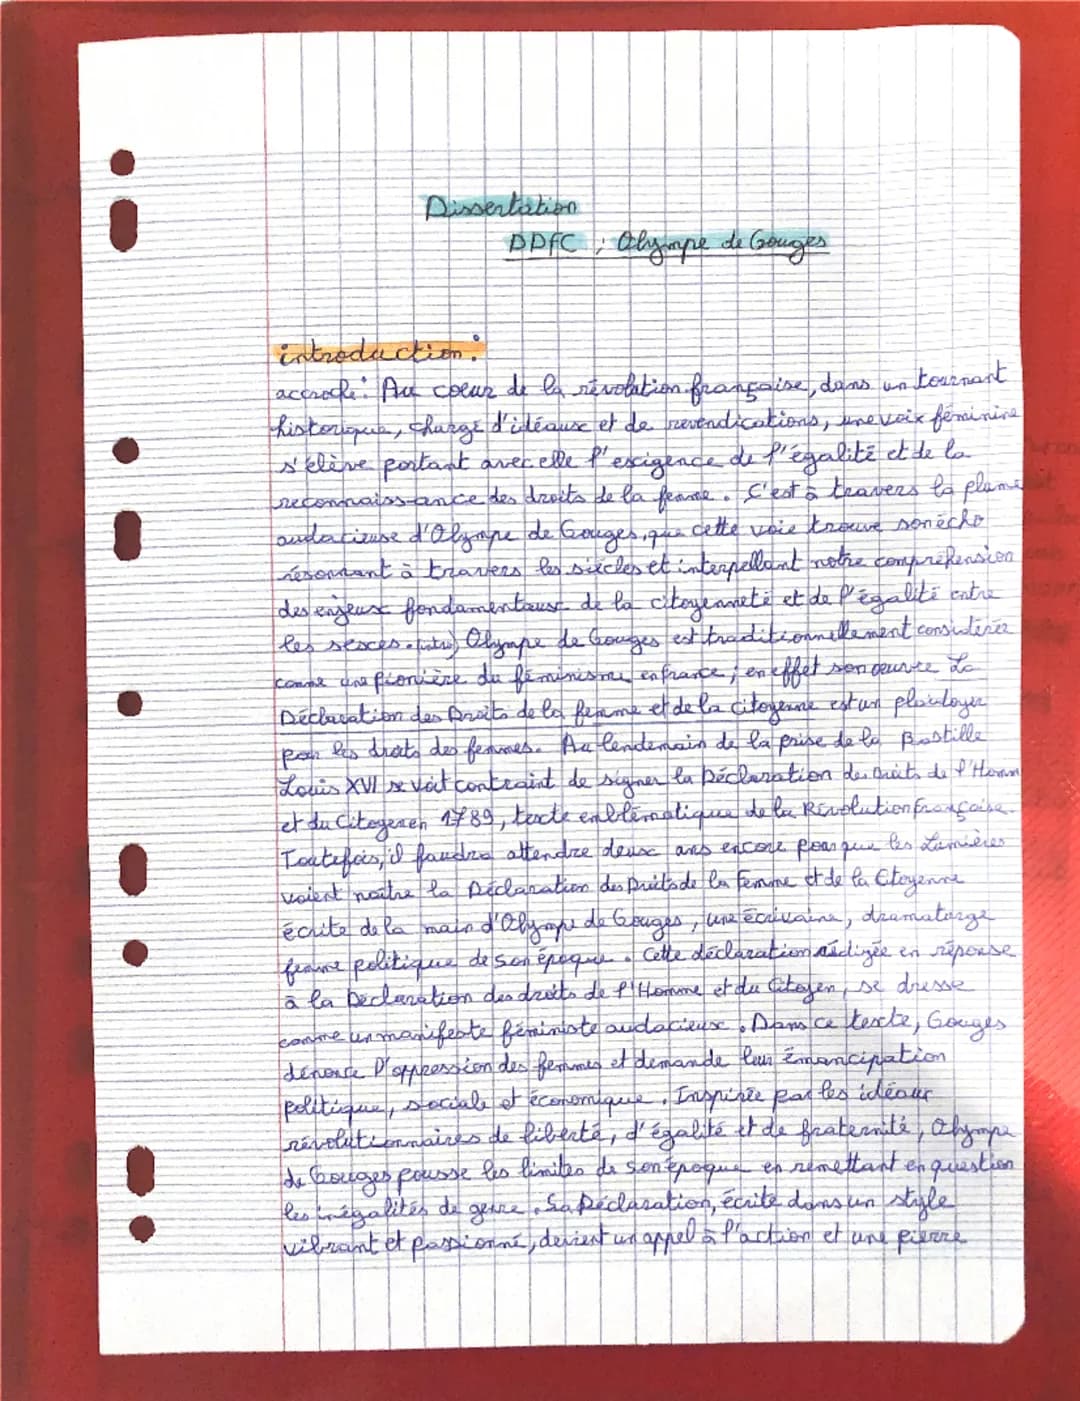 Dissertation
DDFC ; Olympe de Gouges
introduction :
accroche : Au coeur de la révolution française, dans un tournant
historique, chargé d'idéaux et de revendications, une voix féminine
s'élève portant avec elle l'exigence de l'égalité et de la
reconnaissance des droits de la femme. C'est à travers la plume
audacieuse d'Olympe de Gouges, que cette voie trouve son écho
résonnant à travers les siècles et interpellant notre compréhension
des enjeux fondamentaux de la citoyenneté et de l'égalité entre
les sexces. (intro) Olympe de Gouges est traditionnellement considérée
comme une pionière du féminisme en france ; en effet son œuvre La
Déclaration des Droits de la femme et de la citoyenne est un plaidoyer
pour les droits des femmes. Au lendemain de la prise de la Bastille
Louis XVI se voit contraint de signer la Déclaration des droits de l'Homm
et du Citoyen en 1789, texte emblématique de la Révolution Française.
Toutefois, il faudra attendre deux ans encore pour que les Lumières
voient naître la Déclaration des Droits de la Femme et de la Citoyenne
écrite de la main d'Olympe de Gouges, une écrivaine, dramaturge
femme politique de son époque. Cette déclaration rédigée en réponse
à la Déclaration des droits de l'Homme et du Citoyen, se dresse
comme un manifeste féministe audacieux. Dans ce texte, Gouges
dénonce l'oppression des femmes et demande leur émancipation
politique, sociale et économique. Inspirée par les idéaux
révolutionnaires de liberté, d'égalité et de fraternité, Olympe
de Gouges pousse les limites de son époque en remettant en question
les inégalités de genre. Sa Déclaration, écrite dans un style
vibrant et passionné, devient un appel à l'action et une pierre